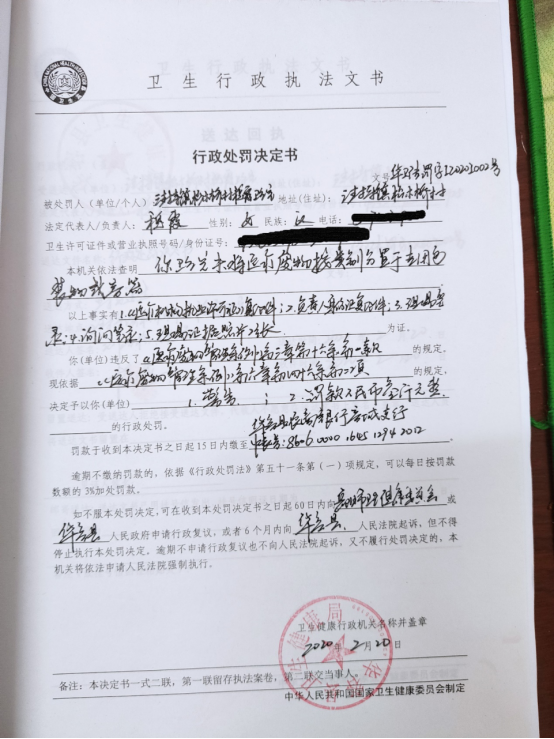 卫生行政执法文书
行政处罚决定书
文号 华卫医罚字[2020]002号
被处罚人(单位/个人) 地址(住址):
法定代表人/负责人: 性别: 女 民族: 汉 电话:
卫生许可证件或营业执照号码/身份证号:
本机关依法查明 你诊所未将医疗废物按类别分置于专用包
装物或容器
以上事实有 1.《医疗机构执业许可证》复印件;2.负责人身份证复印件;3.现场笔
录;4.询问笔录;5. 为证。
你(单位)违反了《医疗废物管理条例》第三章第十六条第一款 的规定。
现依据 《医疗废物管理条例》第六章第四十六条第二项 的规定,
决定予以你(单位) 1.警告; 2.罚款人民币 元整
的行政处罚。
罚款于收到本决定书之日起15日内缴至
逾期不缴纳罚款的,依据《行政处罚法》第五十一条第(一)项规定,可以每日按罚款
数额的3%加处罚款。
如不服本处罚决定,可在收到本处罚决定书之日起60日内向 或
华容县 人民政府申请行政复议,或者6个月内向 华容县 人民法院起诉,但不得
停止执行本处罚决定。逾期不申请行政复议也不向人民法院起诉,又不履行处罚决定的,本
机关将依法申请人民法院强制执行。
卫生健康行政机关名称并盖章
2020年2月20日
备注:本决定书一式二联,第一联留存执法案卷,第二联交当事人。
中华人民共和国国家卫生健康委员会制定